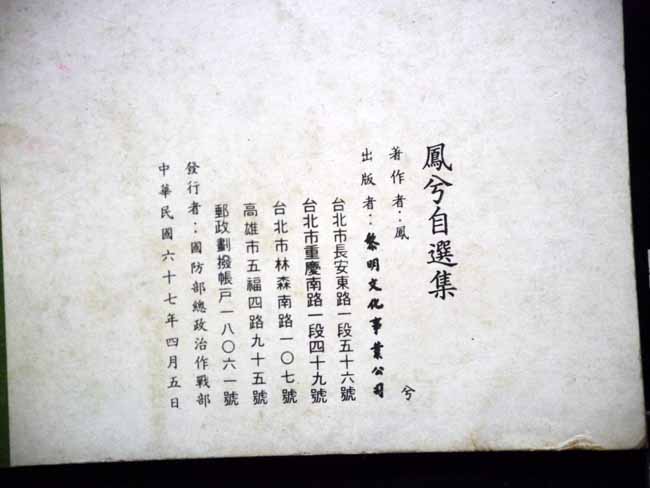 鳳兮自選集
著作者：鳳兮
出版者：黎明文化事業公司
台北市長安東路一段五十六號
台北市重慶南路一段四十九號
台北市林森南路一〇七號
高雄市五福四路九十五號
郵政劃撥帳戶一八〇六一號
發行者：國防部總政治作戰部
中華民國六十七年四月五日